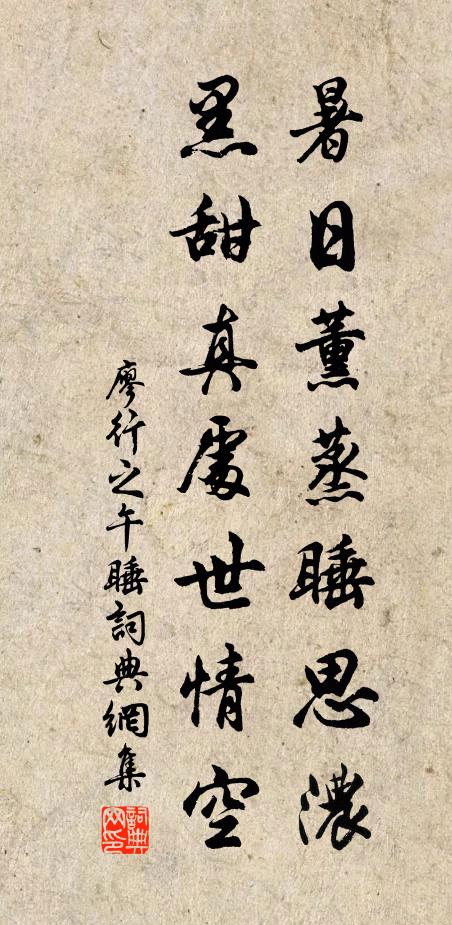 暑日薰蒸睡思濃
黑甜真處世情空
廖行之午睡詞典網集
詞典網印